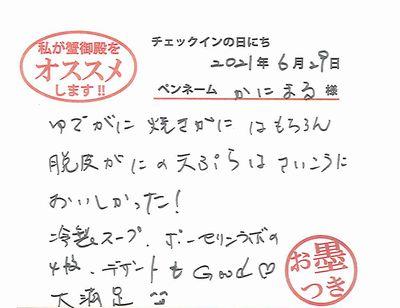 私が蟹御殿を
オススメ
します!!
チェックインの日にち
2021年6月29日
ペンネーム かにまる 様
ゆでがに 焼きがに はもちろん
脱皮がにの天ぷらは さいこうに
おいしかった!
冷製スープ、ポーセリンラボの
デザートもGood♡
大満足
お墨
つき